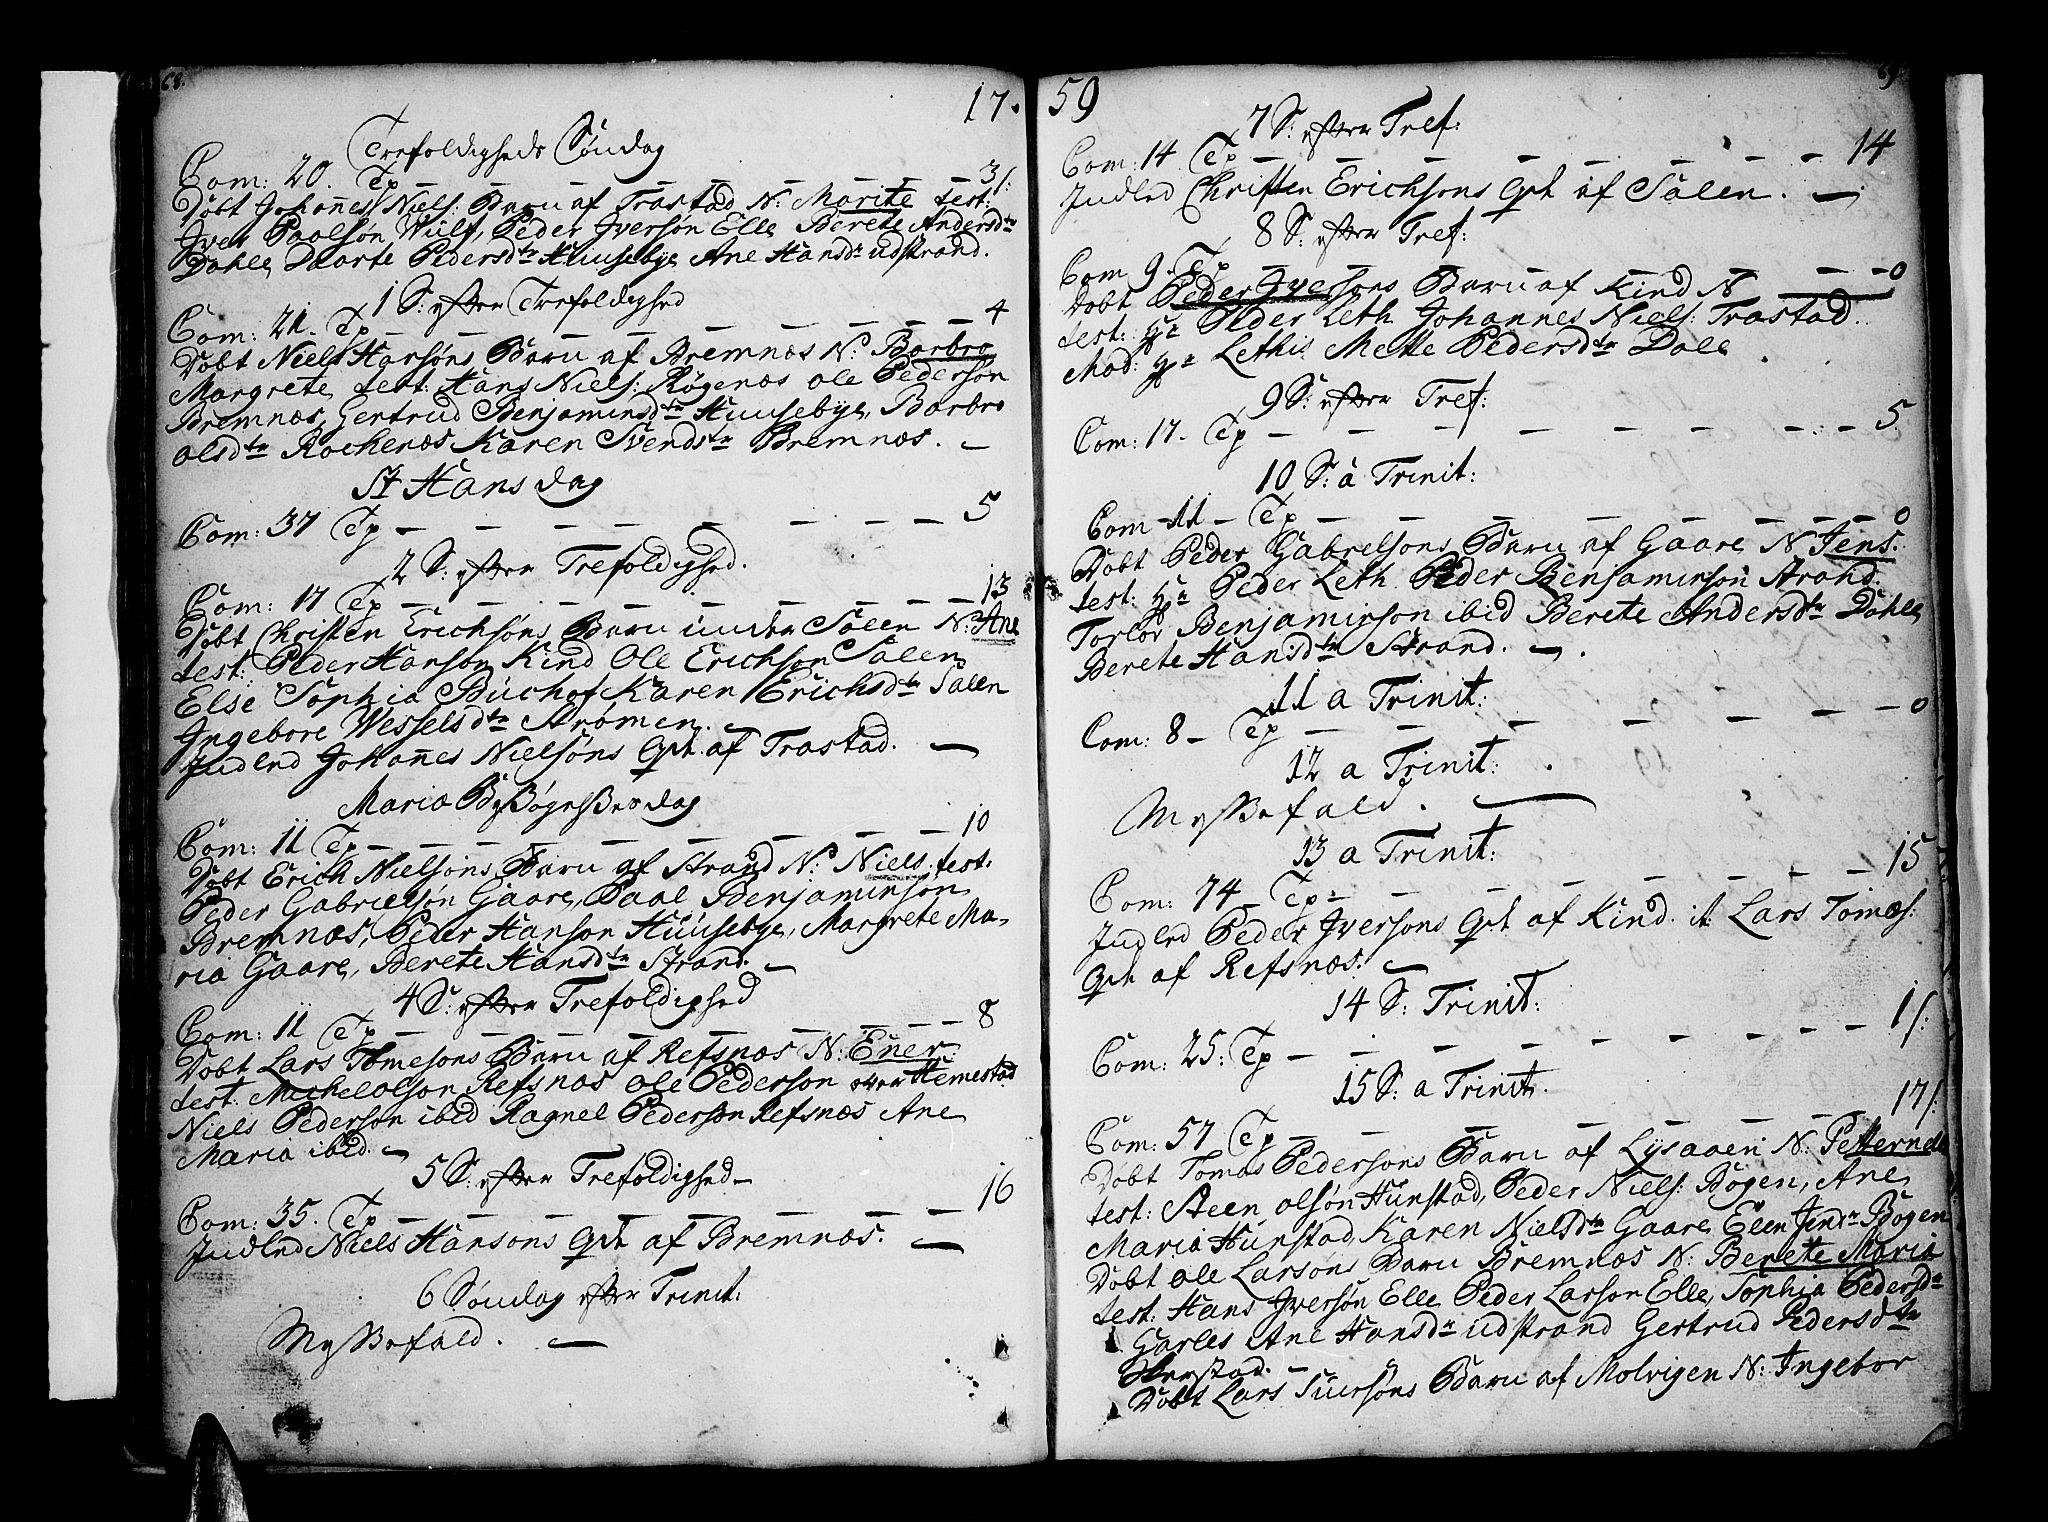 68.
17.
Trefoldigheds Søndag
Com: 20. Tp — — — — — — — 3/:
Døbt Johañes Niels: Barn af Trastad N: Marite test:
Iver Paalsøn Wulf, Peder Iversøn Elle Berete Andersdtr
Dahle Daarte Pedersdtr Huusebye Ane Hansdr udstrand.
1 S: efter Trefoldighed
Com: 21. Tp — — — — — — — 4
Døbt Niels Hansøns Barn af Bremnæs N: Barbro
Margrete test: Hans Niels: Røgenæs Ole Pedersøn
Bremnæs, Gertrud Benjaminsdtr Huusebye, Barbro
olsdtr Rochenæs Karen Svendstr Bremnæs. —
St Hans dag
Com: 37 Tp — — — — — — — 5
2 S: efter Trefoldighed.
Com: 17 Tp — — — — — — — 13
Døbt Christen Erichsøns Barn under Salen N: Ane
test: Peder Hanson Kind Ole Erichson Salen
Else Sophia Buchof Karen Erichsdtr Salen
Ingebore Wesselsdtr Strømen. —
Indled Johañes Nielsøns Qvt af Trastad. —
Maria Besøgelses dag
Com: 11 Tp — — — — — — — 10
Døbt Erich Nielsøns Barn af Strand N: Niels. test:
Peder Gabrielsøn Gaare, Paal Benjaminson
Bremnæs, Peder Hanson Huusebye, Margrete Ma-
ria Gaare, Berete Hansdtr Strand. —
4 S: efter Trefoldighed
Com: 11 Tp — — — — — — — 8
Døbt Lars Tomesons Barn af Refsnæs N: Ener.
test: Michel olson Refsnæs Ole Pederson over Hemestad
Niels Pederson ibid Ragnel Pederson Refsnæs Ane
Maria ibid. —
5 S: efter Trefoldighed —
Com: 35. Tp — — — — — — — 16
Indled Niels Hansons Qvt af Bremnæs. —
6 Søndag efter Trinit:
Messefald. —
69
59
7 S: efter Tref:
Com: 14 Tp — — — — — — — 14
Indled Christen Erichsons Qvt af Salen. —
8 S: efter Tref:
Com 9. Tp — — — — — — — 0
Døbt Peder Iversons Barn af Kind N
test: Hr Peder Leth Johannes Niels: Trastad.
Mad: Hr Lethis Mette Pedersdtr Dale
9 S: efter Tref:
Com: 17. Tp — — — — — — — 5
10 S: a Trinit:
Com 11 — Tp — — — — — — — 0
Døbt Peder Gabrelsons Barn af Gaare N Jens.
test: Hr Peder Leth Peder Benjaminson Strand.
Torlof Benjaminson ibid Berete Andersdtr Dahle
Berete Hansdtr Strand. —
11 a Trinit:
Com: 8 — Tp — — — — — — — 0
12 a Trinit:
Messefald. —
13 a Trinit:
Com: 74 Tp — — — — — — — 15
Indled Peder Iversons Qvt af Kind. it Lars Tomæs:
Qvt af Refsnæs. —
14 S: Trinit:
Com: 25: Tp — — — — — — — 1/:
15 S: a Trinit.
Com: 57 Tp — — — — — — — 17/:
Døbt Tomas Pedersons Barn af Lysaaen N: Petternele
test: Steen olsøn Hunstad, Peder Niels: Bogen, Ane
Maria Hunstad Karen Nielsdtr Gaare Elen Jensdr Bogen
Døbt Ole Larsons Barn Bremnæs N: Berete Maria
test: Hans Iversøn Elle Peder Larson Elle, Sophia Pedersdr
Garles Ane Hansdr udstrand Gertrud Pedersdtr
Døbt Lars Siversøns Barn af Molvigen N: Ingebor